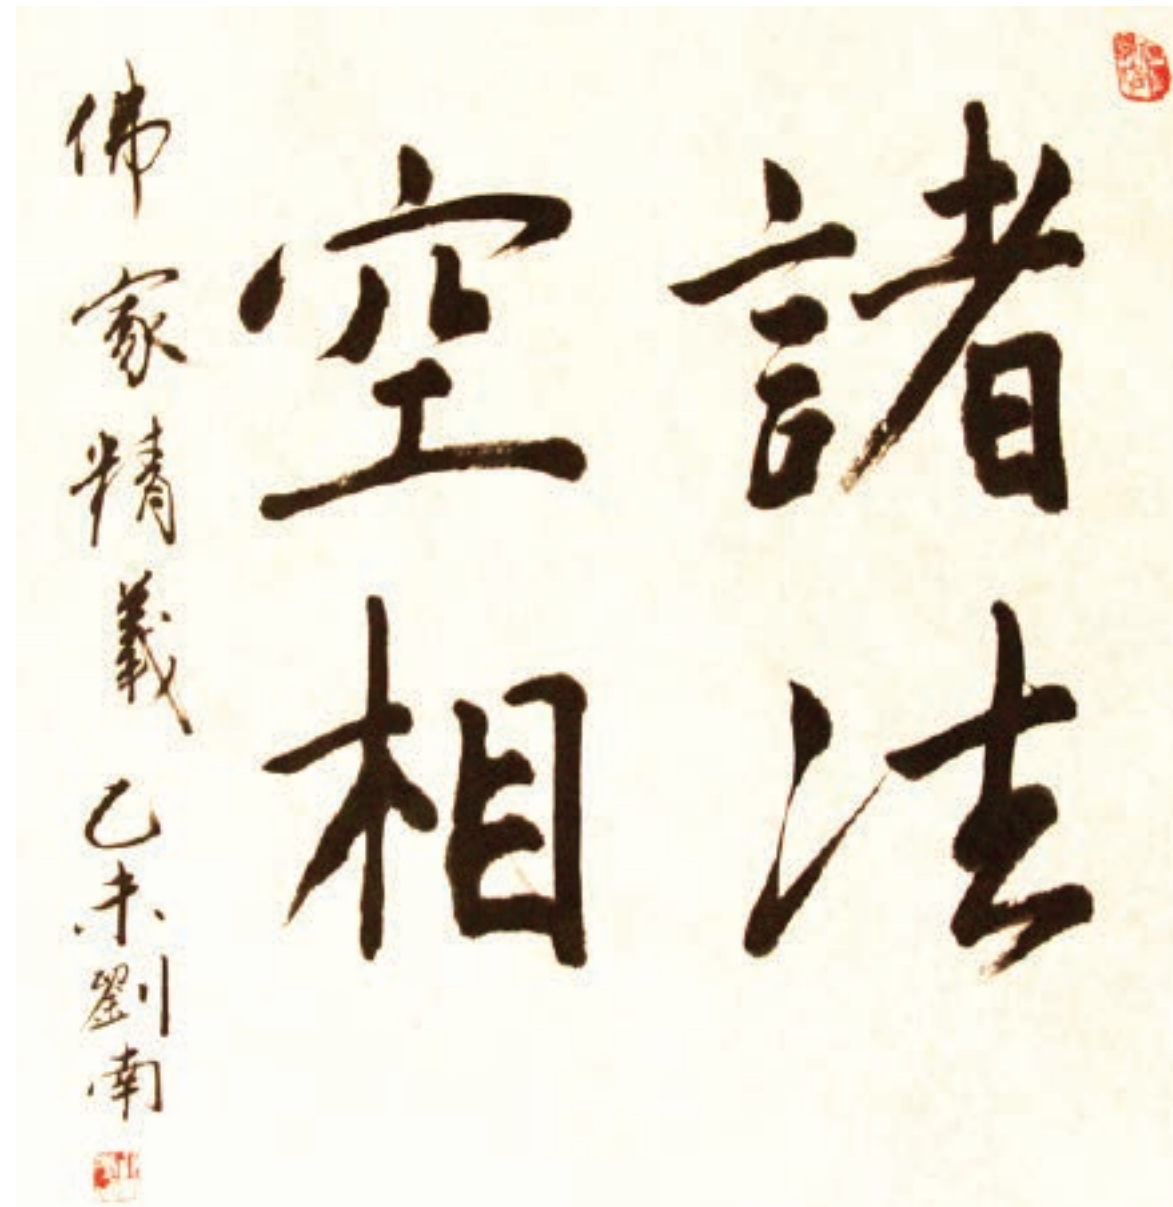 諸法
空相
佛家精義乙未劉南